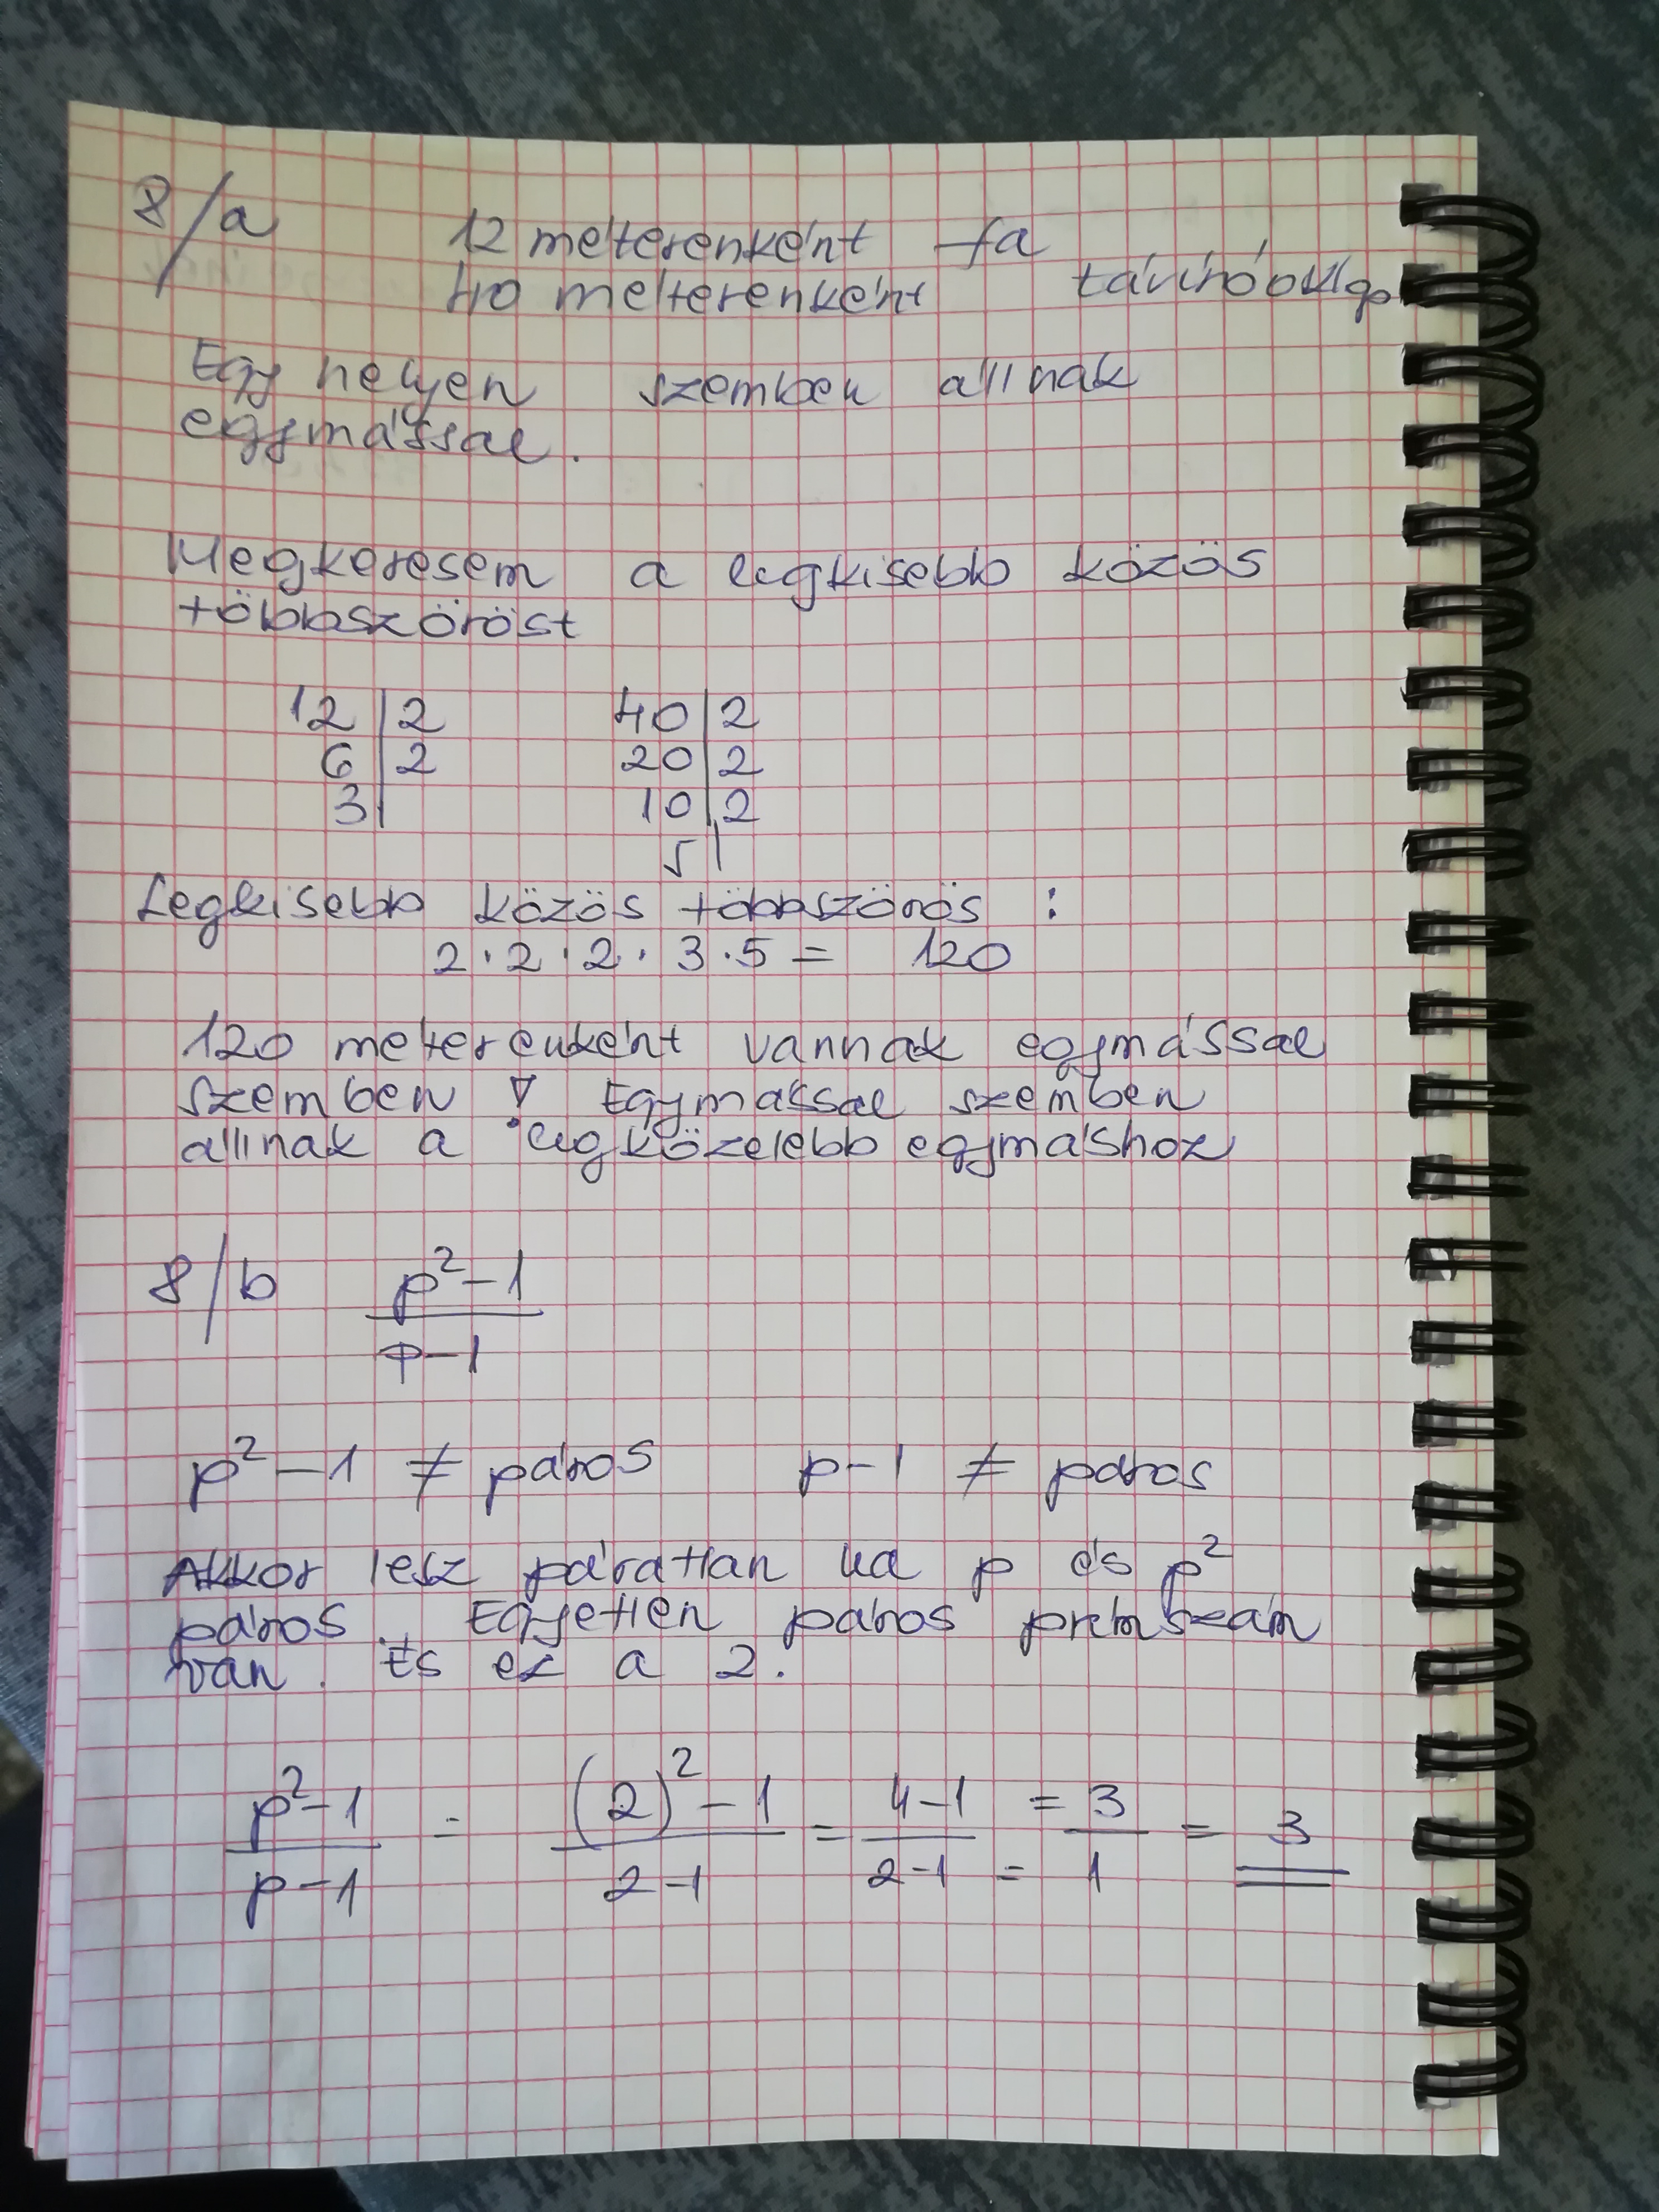 8/a 12 méterenként fa
40 méterenként távíróoszlop
Egy helyen szemben állnak
egymással.
Megkeresem a legkisebb közös
többszöröst
12 | 2 40 | 2
6 | 2 20 | 2
3 | 10 | 2
5 |
Legkisebb közös többszörös :
2 · 2 · 2 · 3 · 5 = 120
120 méterenként vannak egymással
szemben ! Egymással szemben
állnak a legközelebb egymáshoz
8/b p² – 1
p – 1
p² – 1 ≠ páros p – 1 ≠ páros
Akkor lesz páratlan ha p és p²
páros. Egyetlen páros prímszám
van. És ez a 2.
p² – 1 = (2)² – 1 = 4 – 1 = 3 = 3
p – 1 2 – 1 2 – 1 = 1